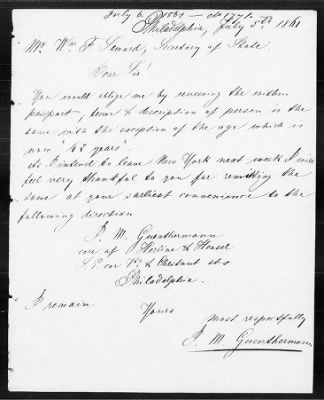 July 6 1861 - No 1771.
Philadelphia, July 5th 1861
Mr. Wm F. Seward, Secretary of State
Dear Sir
You would oblige me by renewing the within
passport, tenor & description of person is the
same with the exception of the age which is
now "42 years".
As I intend to leave New York next week I will
feel very thankful to you for remitting the
same at your earliest convenience to the
following direction
J. M. Guenthermann
care of Horline & Hensel
S. E cor & Chestnut sts
Philadelphia.
I remain
Yours
most respectfully
J. M. Guenthermann